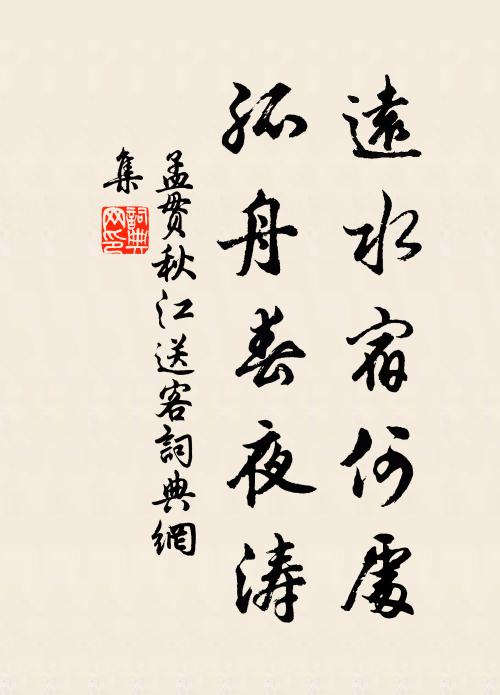 遠水宿何處
孤舟春夜濤
孟貫秋江送客詞典網
集
詞典
网印